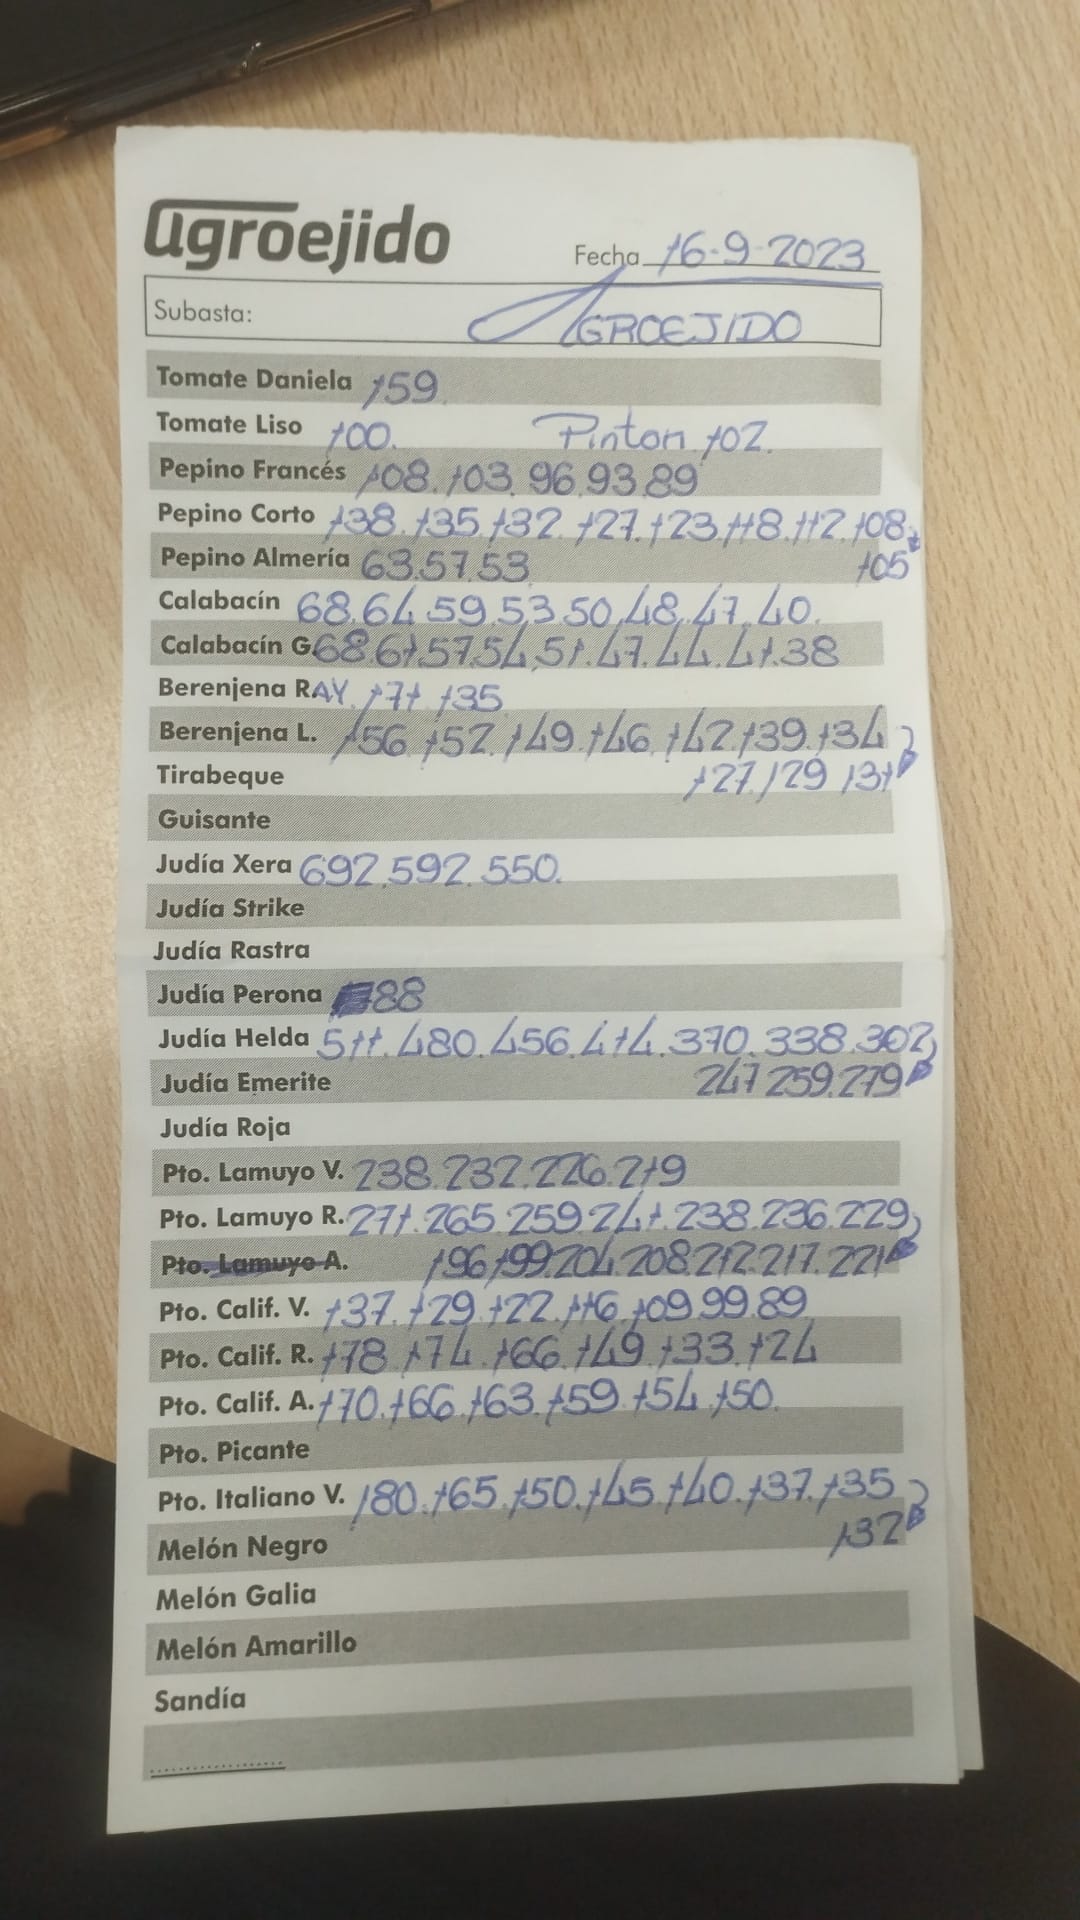 agroejido
Fecha 16-9-2023
Subasta: AGROEJIDO
Tomate Daniela 159.
Tomate Liso 100. Pinton 102.
Pepino Francés 108.103.96.93.89
Pepino Corto 138.135.132.127.123.118.112.108
Pepino Almería 63.57.53 105
Calabacín 68.64.59.53.50.48.47.40.
Calabacín G. 68.61.57.54.51.47.44.41.38
Berenjena RAY. 171 135
Berenjena L. 156.152.149.146.142.139.134
Tirabeque 127.129 131
Guisante
Judía Xera 692.592.550.
Judía Strike
Judía Rastra
Judía Perona 88
Judía Helda 511.480.456.414.370.338.302
Judía Emerite 247 259.279
Judía Roja
Pto. Lamuyo V. 238.232.226.219
Pto. Lamuyo R. 271.265.259.241.238.236.229
Pto. Lamuyo A. 196.199.204.208.212.217.221
Pto. Calif. V. 137.129.122.116.109.99.89
Pto. Calif. R. 178.174.166.149.133.124
Pto. Calif. A. 170.166.163.159.154.150.
Pto. Picante
Pto. Italiano V. 180.165.150.145.140.137.135
Melón Negro 132
Melón Galia
Melón Amarillo
Sandía